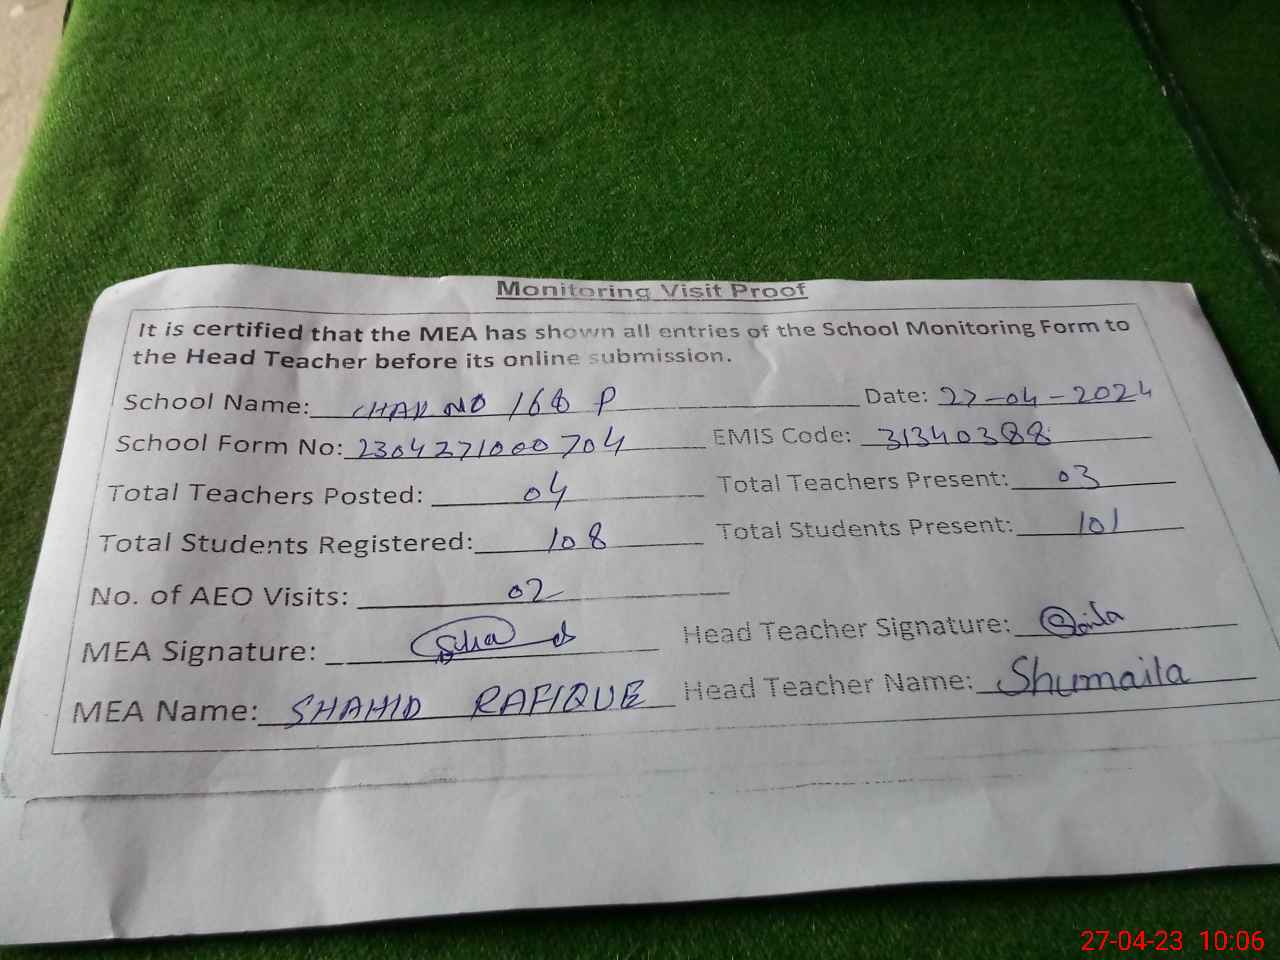 Monitoring Visit Proof
It is certified that the MEA has shown all entries of the School Monitoring Form to
the Head Teacher before its online submission.
School Name: CHAK NO 168 P Date: 27-04-2024
School Form No: 2304271000704 EMIS Code: 31340388
Total Teachers Posted: 04 Total Teachers Present: 03
Total Students Registered: 108 Total Students Present: 101
No. of AEO Visits: 02
MEA Signature: Head Teacher Signature:
MEA Name: SHAHID RAFIQUE Head Teacher Name: Shumaila
27-04-23 10:06